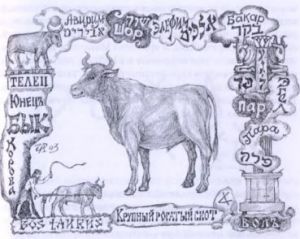 Авирим
אבירים
שור
Шор
אלפים
Бакар
בקר
פר
пар
Пара
פרה
ТЕЛЕЦ
Юнец
БЫК
Корова
BOS TAURUS
Крупный рогатый скот
ВОЛЪ